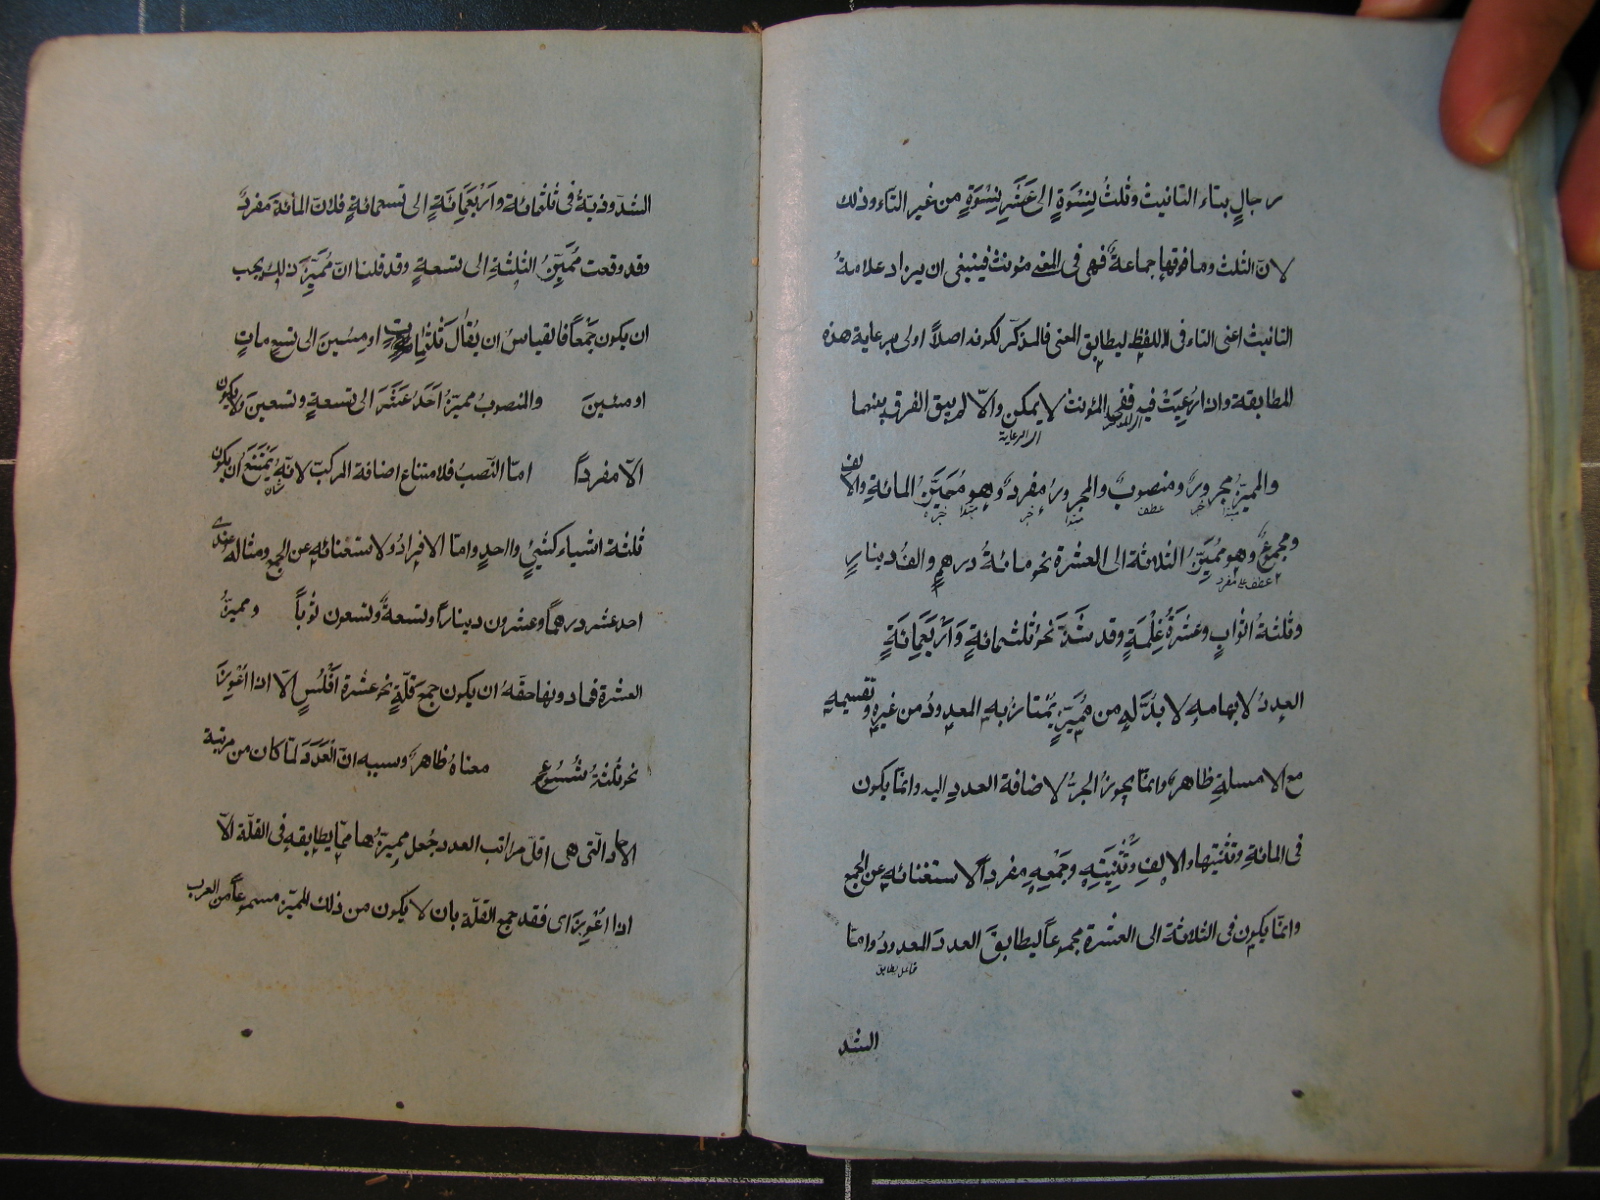 رجالٍ بتاء التانيث وثلثُ لِنِسْوَةٍ الى عَشَرِ نِسْوَةٍ من غير التاء وذلك
لانّ الثلث وما فوقها جماعةٌ فهى فى المعنى مؤنث فينبغى ان يزاد علامةُ
التانيث اعنى التاء فى اللفظ ليطابق المعنى فالمذكّر لكونه اصلاً اولى برعاية هذه
المطابقة واذا رُعِيَتْ فيه ففى المؤنث لا يمكن والّا لم يبق الفرق بينهما
اى الرعاية
والمميّز مجرورٌ ومنصوبٌ والمجرورُ مفردٌ وهو مُمَيِّزُ المائةِ والالف
مبتدا خبر عطف مبتدا خبر مبتدا خبره
ومجموعٌ وهو مُمَيِّزُ الثلاثة الى العشرة نحو مائةُ درهمٍ والفُ دينارٍ
عطف على مفرد
وثلثةُ اثوابٍ وعشرةُ غِلْمَةٍ وقد شَذَّ نحو ثلثمائةٍ وَاَرْبَعَمِائَةٍ
العددُ لابهامه لا بُدَّ له من مُمَيِّزٍ يُمْتازُ به المعدودُ من غيره وتقسيمه
مع الامسلةِ ظاهرٌ وانما يجوز الجرُّ لاضافة العددِ اليه وانما يكون
فى المائةِ وتثنيتها والالفِ وَتَثْنِيَتِهِ وَجَمْعِهِ مفرداً لاستغنائه عن الجمع
وانما يكون فى الثلاثة الى العشرة مجموعاً ليطابقَ العددَ المعدودُ وامّا
فاعل يطابق
الشذ
الشذوذيّةُ فى ثلثمائة واَرْبَعَمِائَةٍ الى تسعمائةٍ فلانّ المائة مفردٌ
وقد وقعت مُمَيِّزُ الثلثةِ الى تسعةٍ وقد قلنا انّ مُمَيِّزَ ذلك يجب
ان يكون جَمْعًا فالقياسُ ان يُقال ثلثُ مِئاتٍ او مِئينَ الى تسع مئاتٍ
او مئينَ والمنصوبُ مميّزُ اَحَدَ عَشَرَ الى تسعةٍ وتسعينَ ولا يكون
الّا مفرداً امّا النّصبُ فلامتناع اضافة المركب لانّه يَمْتَنِعُ ان يكون
ثلثة اشياء كشيئٍ واحدٍ وامّا الافرادُ ولاستغنائه عن الجمع ومثاله عندى
احد عشر درهمًا وعشرون دينارًا وتسعةٌ وتسعون ثوبًا ومميّزُ
العشرة فما دونها حقّهُ ان يكون جمعَ قلّةٍ نحو عشرة اَفْلُسٍ الّا اذا اُعْوِزَ
نحو ثلثةُ شُسُوعٍ معناهُ ظاهرٌ وسببه انّ العَدَدَ لمّا كان من مرتبة
الآحاد التى هى اقلّ مراتب العدد جُعل مميزُها ممّا يطابقه فى القلّة الّا
اذا اُعْوِزَ اى فقد جمع القلّة بان لا يكون من ذلك المميّز مسموعًا من العرب